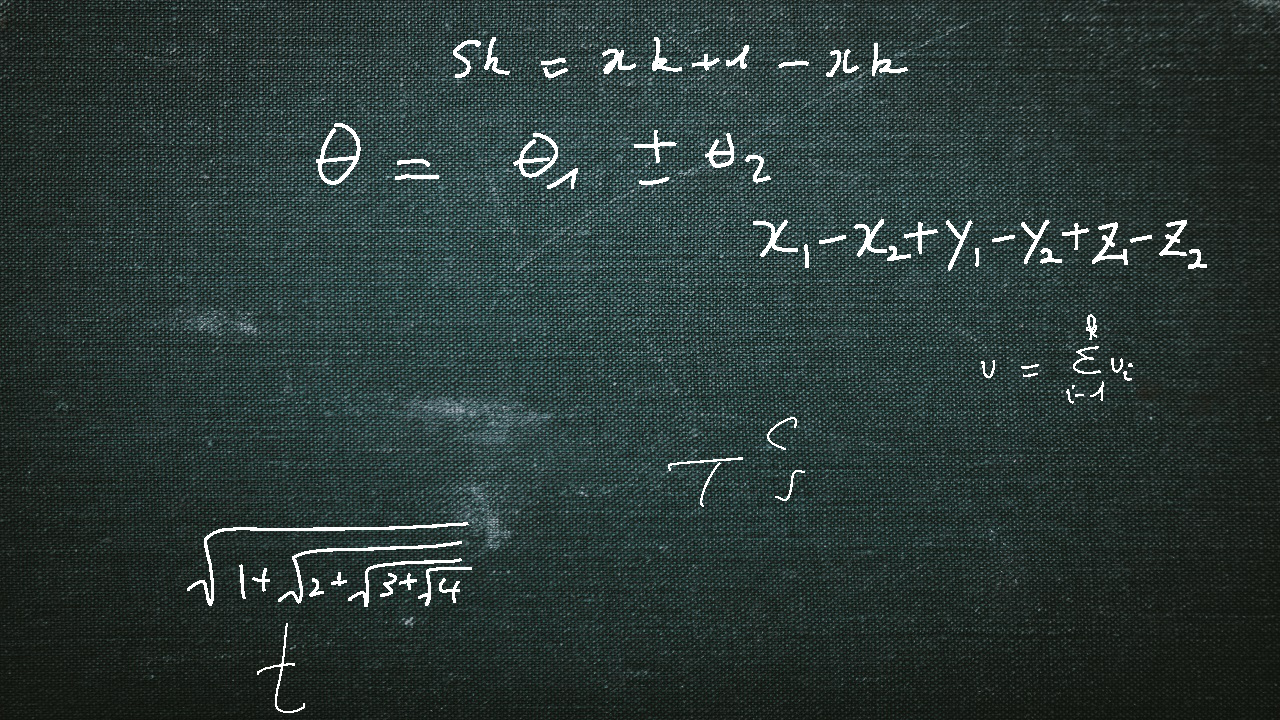 sk = xk+1 - xk
θ = θ₁ ± θ₂
x₁-x₂+y₁-y₂+z₁-z₂
v = \sum_{i-1}^{k} v_i
T_s^c
\sqrt{1+\sqrt{2+\sqrt{3+\sqrt{4}}}}
t